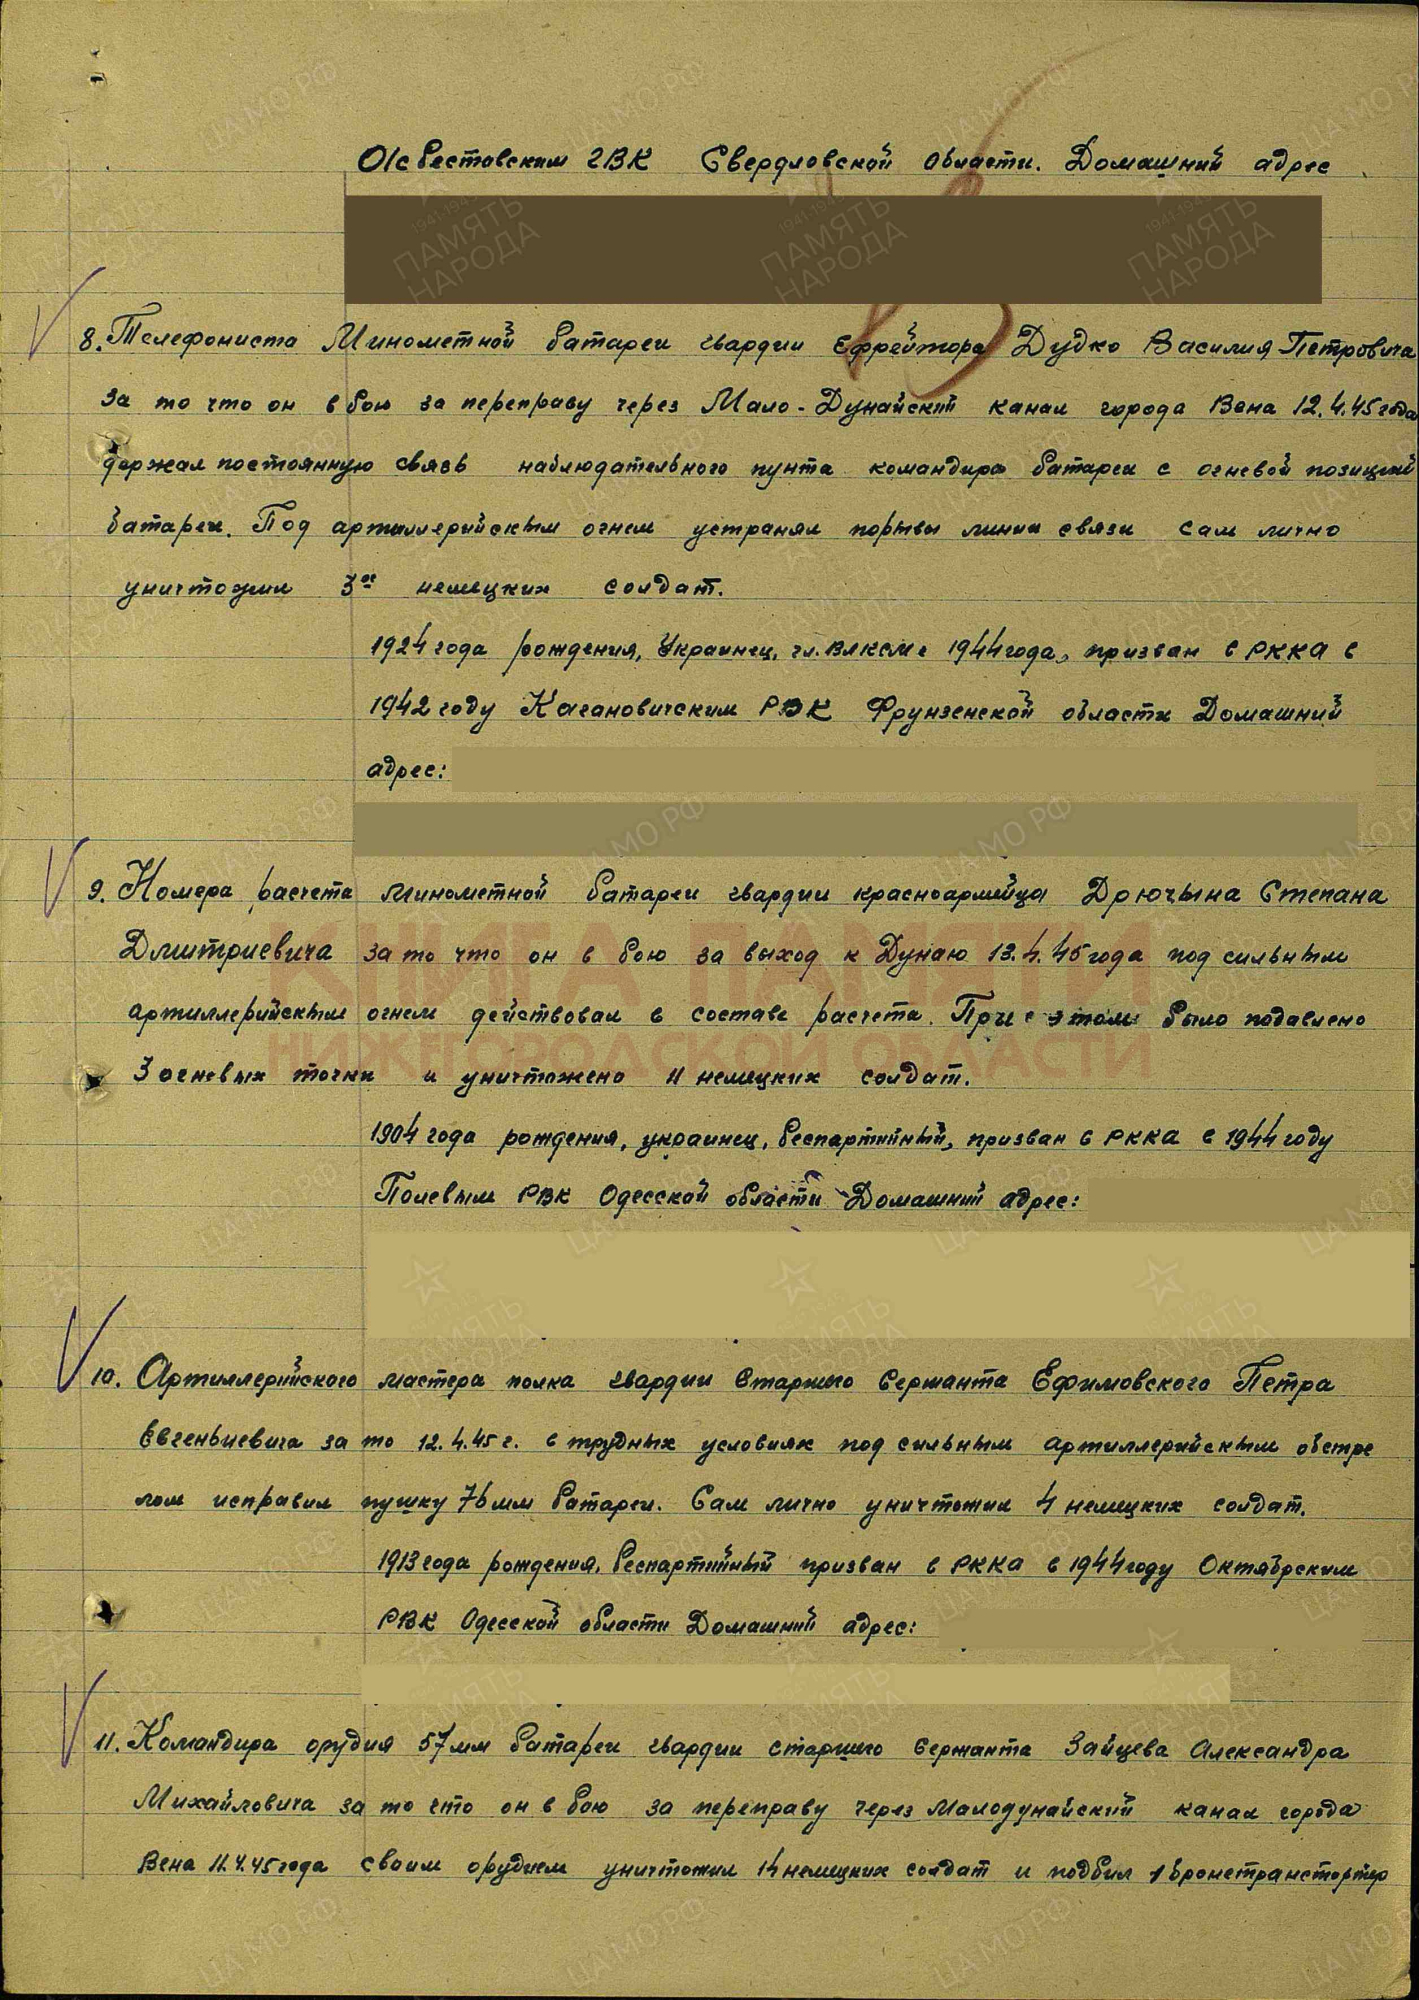 О/сбестовским ГВК Свердловской области. Домашний адрес
8. Телефониста Минометной батареи гвардии Ефрейтора Дудко Василия Петровича
за то что он в бою за переправу через Мало-Дунайский канал города Вена 12.4.45 года
держал постоянную связь наблюдательного пунта командира батареи с огневой позицией
батареи. Под артиллерийскым огнем устранял порывы линии связи сам лично
уничтожил 3ое немецких солдат.
1924 года рождения, Украинец, чл. ВЛКСМ с 1944 года, призван в РККА в
1942 году Кагановичским РВК Фрунзенской области Домашний
адрес:
9. Номера расчета минометной батареи гвардии красноармейца Дрючына Степана
Дмитриевича за то что он в бою за выход к Дунаю 13.4.45 года под сильным
артиллерийскым огнем действовал в составе расчета. При этом было подавлено
3 огневых точки и уничтожено 11 немецких солдат.
1904 года рождения, украинец, беспартийный, призван в РККА в 1944 году
Полевым РВК Одесской области Домашний адрес:
10. Артиллерийского мастера полка гвардии Старшего Сержанта Ефимовского Петра
Евгеньиевича за то 12.4.45 г. в трудных условиях под сильным артиллерийскым обстре
лом исправил пушку 76 мм батареи. Сам лично уничтожил 4 немецких солдат.
1913 года рождения, беспартийный призван в РККА в 1944 году Октябрским
РВК Одесской области Домашний адрес:
11. Командира орудия 57 мм батареи гвардии старшего Сержанта Зайцева Александра
Михайловича за то что он в бою за переправу через Малодунайский канал города
Вена 11.4.45 года своим орудием уничтожил 14 немецких солдат и подбил 1 бронетранстортер
КНИГА ПАМЯТИ
НИЖЕГОРОДСКОЙ ОБЛАСТИ
ЦА МО РФ
1941-1945
ПАМЯТЬ
НАРОДА